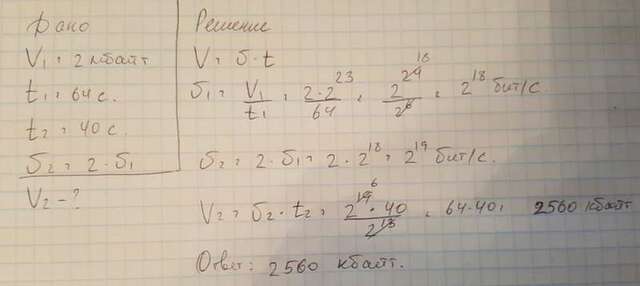 Дано
V₁ = 2 кбайт
t₁ = 64 с.
t₂ = 40 с.
υ₂ = 2 · υ₁
V₂ - ?
Решение
V = υ · t
υ₁ = V₁/t₁ = 2 · 2²³/64 = 2²⁴/2⁶ = 2¹⁸ бит/с
υ₂ = 2 · υ₁ = 2 · 2¹⁸ = 2¹⁹ бит/с.
V₂ = υ₂ · t₂ = 2¹⁹ · 40/2¹³ = 64 · 40 = 2560 кбайт
Ответ: 2560 кбайт.